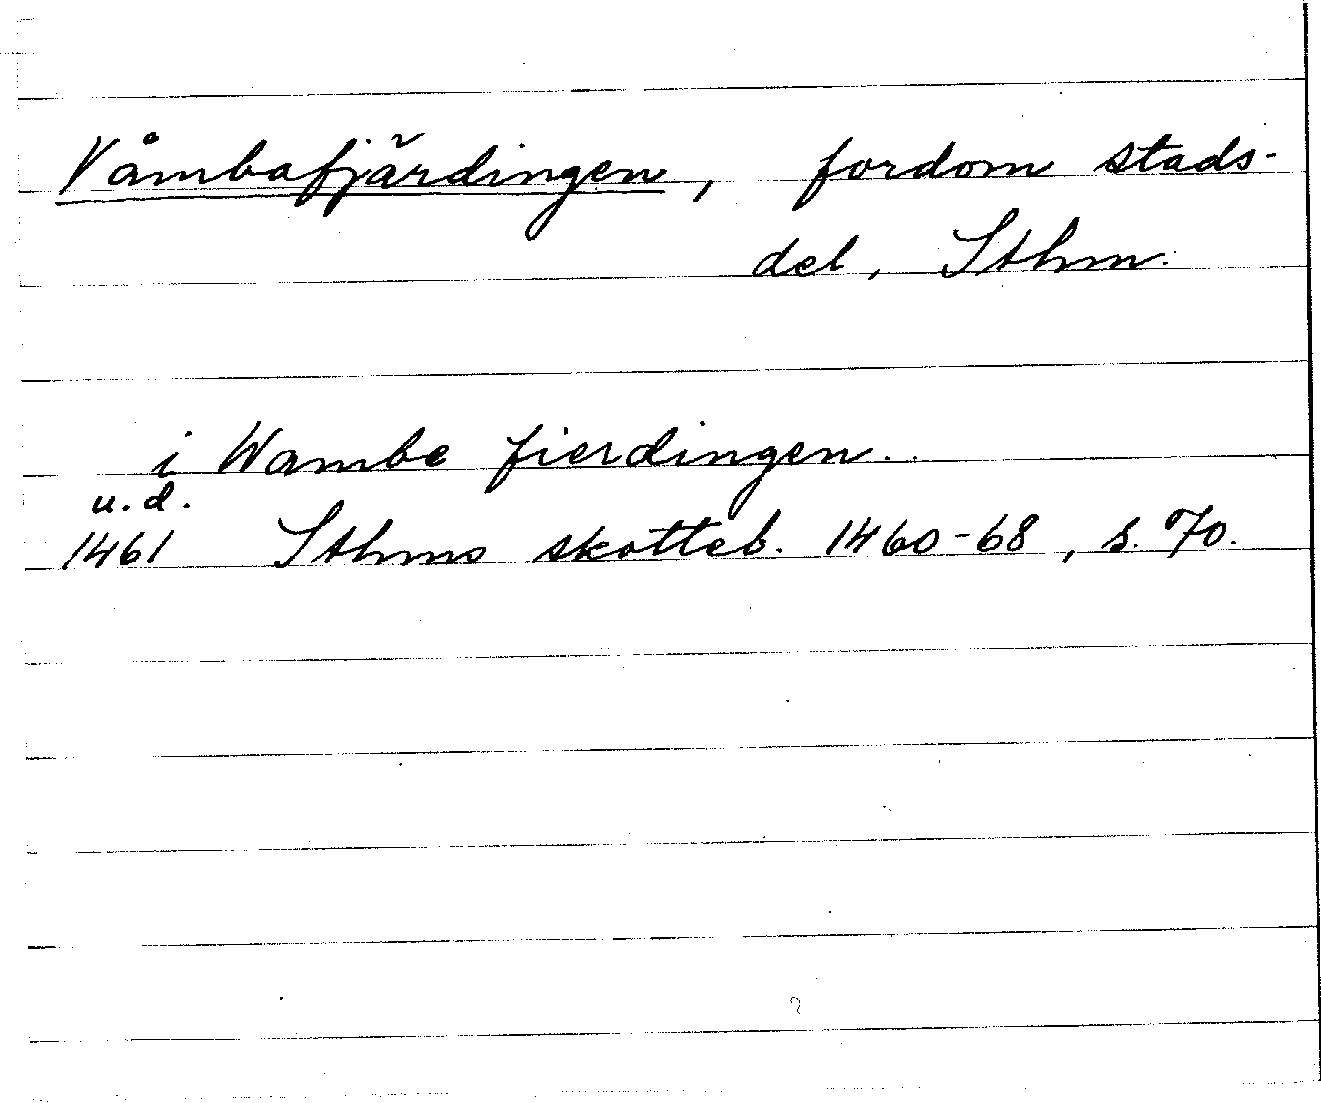 Våmbafjärdingen, fordom stads-
del, Sthm.
i Wambe fierdingen.
u.d.
1461 Sthms skotteb. 1460-68, s. 70.